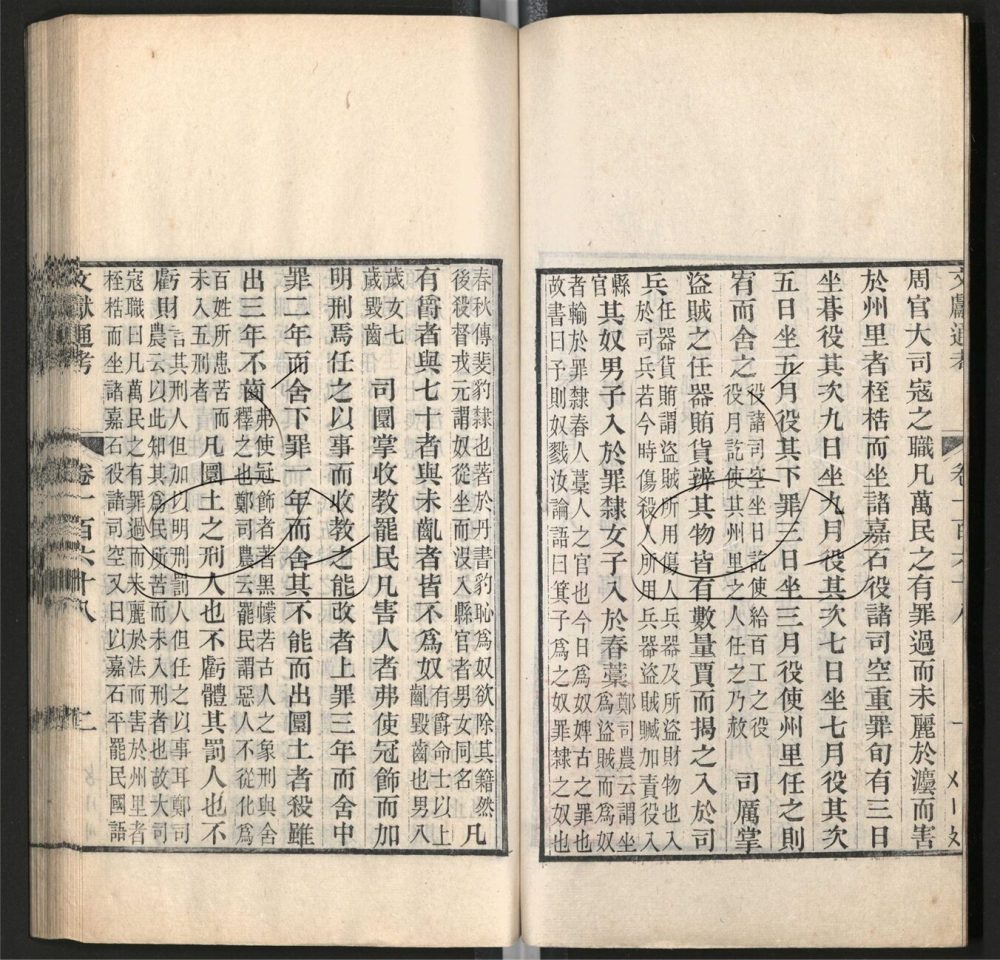 文獻通考 卷一百六十八 一
周官大司寇之職凡萬民之有罪過而未麗於灋而害
於州里者桎梏而坐諸嘉石役諸司空重罪旬有三日
坐朞役其次九日坐九月役其次七日坐七月役其次
五日坐五月役其下罪三日坐三月役使州里任之則
宥而舍之役諸司空坐日訖使給百工之役役月訖使其州里之人任之乃赦 司厲掌
盜賊之任器賄貨辨其物皆有數量賈而揭之入於司
兵任器貨賄謂盜賊所用傷人兵器及所盜財物也入於司兵若今時傷殺人所用兵器盜賊贓加責役入
縣官其奴男子入於罪隸女子入於舂藁鄭司農云謂坐為盜賊而為奴
者輸於罪隸舂人藁人之官也今日為奴婢古之罪也故書曰予則奴戮汝論語曰箕子為之奴罪隸之奴也
春秋傳斐豹隸也著於丹書豹恥為奴欲除其籍然後殺督戎元謂奴從坐而沒入縣官者男女同名凡
有爵者與七十者與未齓者皆不為奴有爵命士以上齓毀齒也男八
歲女七歲毀齒 司圜掌收教罷民凡害人者弗使冠飾而加
明刑焉任之以事而收教之能改者上罪三年而舍中
罪二年而舍下罪一年而舍其不能而出圜土者殺雖
出三年不齒弗使冠飾者著黑幪若古人之象刑與舍釋之也鄭司農云罷民謂惡人不從化為
百姓所患苦而未入五刑者凡圜土之刑人也不虧體其罰人也不
虧財言其刑人但加以明刑罰人但任之以事耳鄭司農云以此知其為民所苦而未入刑者也故大司
寇職曰凡萬民之有罪過而未麗於法而害於州里者桎梏而坐諸嘉石役諸司空又曰以嘉石平罷民國語
文獻通考 卷一百六十八 二